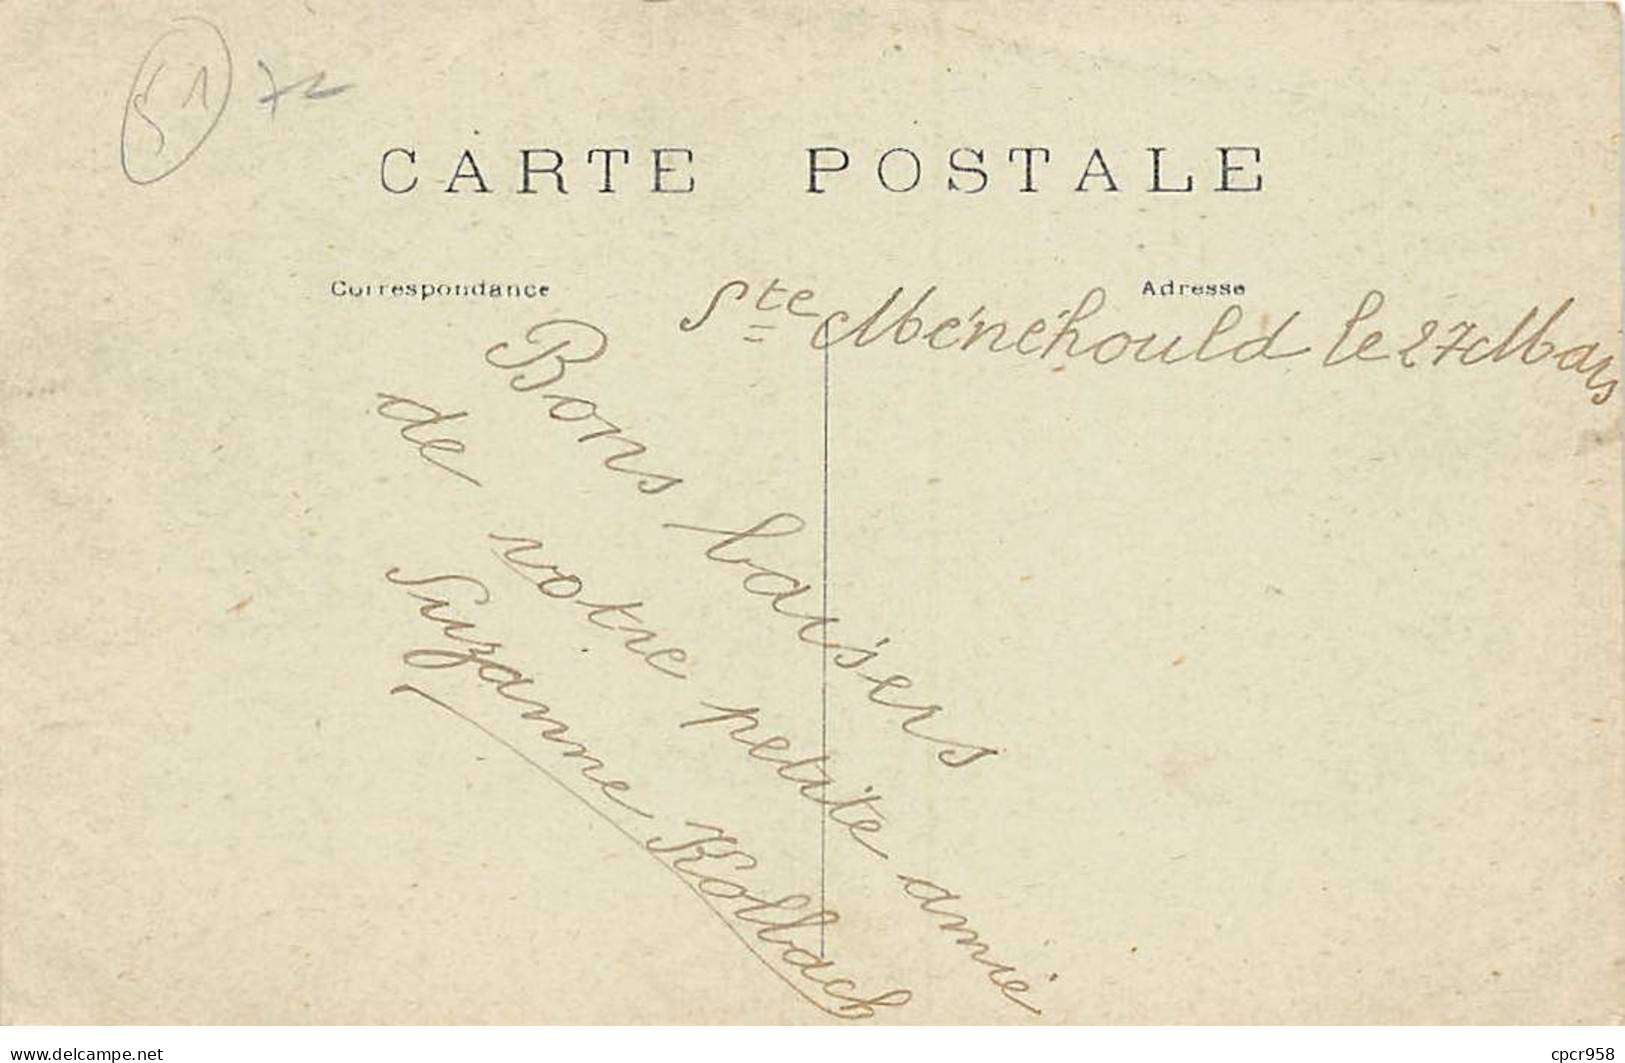 51 72
CARTE POSTALE
Correspondance
Adresse
Ste Ménéhould le 27 Mars
Bons baisers
de votre petite amie
Suzanne Kollbach
delcampe.net
cpcr958